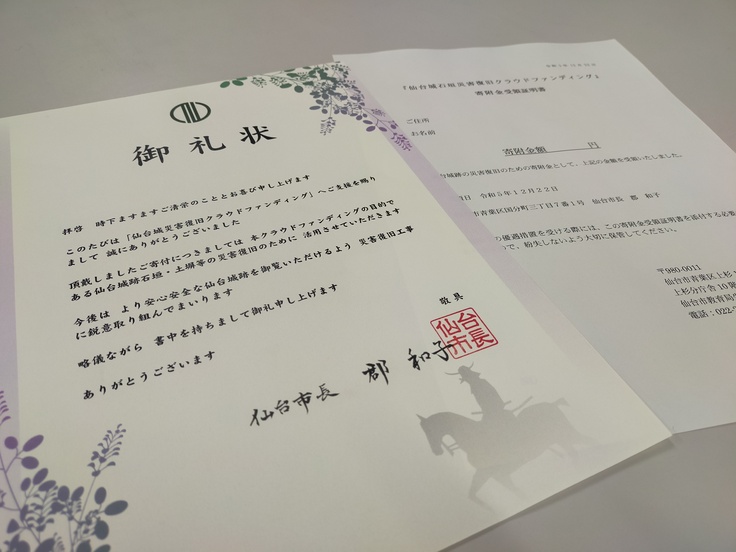 御礼状
拝啓 時下ますますご清栄のこととお喜び申し上げます
このたびは「仙台城災害復旧クラウドファンディング」へご支援を賜り
まして 誠にありがとうございました
頂戴しましたご寄付につきましては 本クラウドファンディングの目的で
ある仙台城跡石垣・土塀等の災害復旧のために 活用させていただきます
今後は より安心安全な仙台城跡を御覧いただけるよう 災害復旧工事
に鋭意取り組んでまいります
略儀ながら 書中を持ちまして御礼申し上げます
ありがとうございます
敬具
仙台市長 郡 和子
仙台市長
「仙台城石垣災害復旧クラウドファンディング」
寄附金受領証明書
ご住所
お名前
寄附金額 円
台城跡の災害復旧のための寄附金として、上記の金額を受領いたしました。
日 令和5年12月22日
市青葉区国分町三丁目7番1号 仙台市長 郡 和子
の優遇措置を受ける際には、この寄附金受領証明書を添付する必要
で、紛失しないよう大切に保管してください。
〒980-0011
仙台市青葉区上杉
上杉分庁舎10階
仙台市教育局
電話:022-